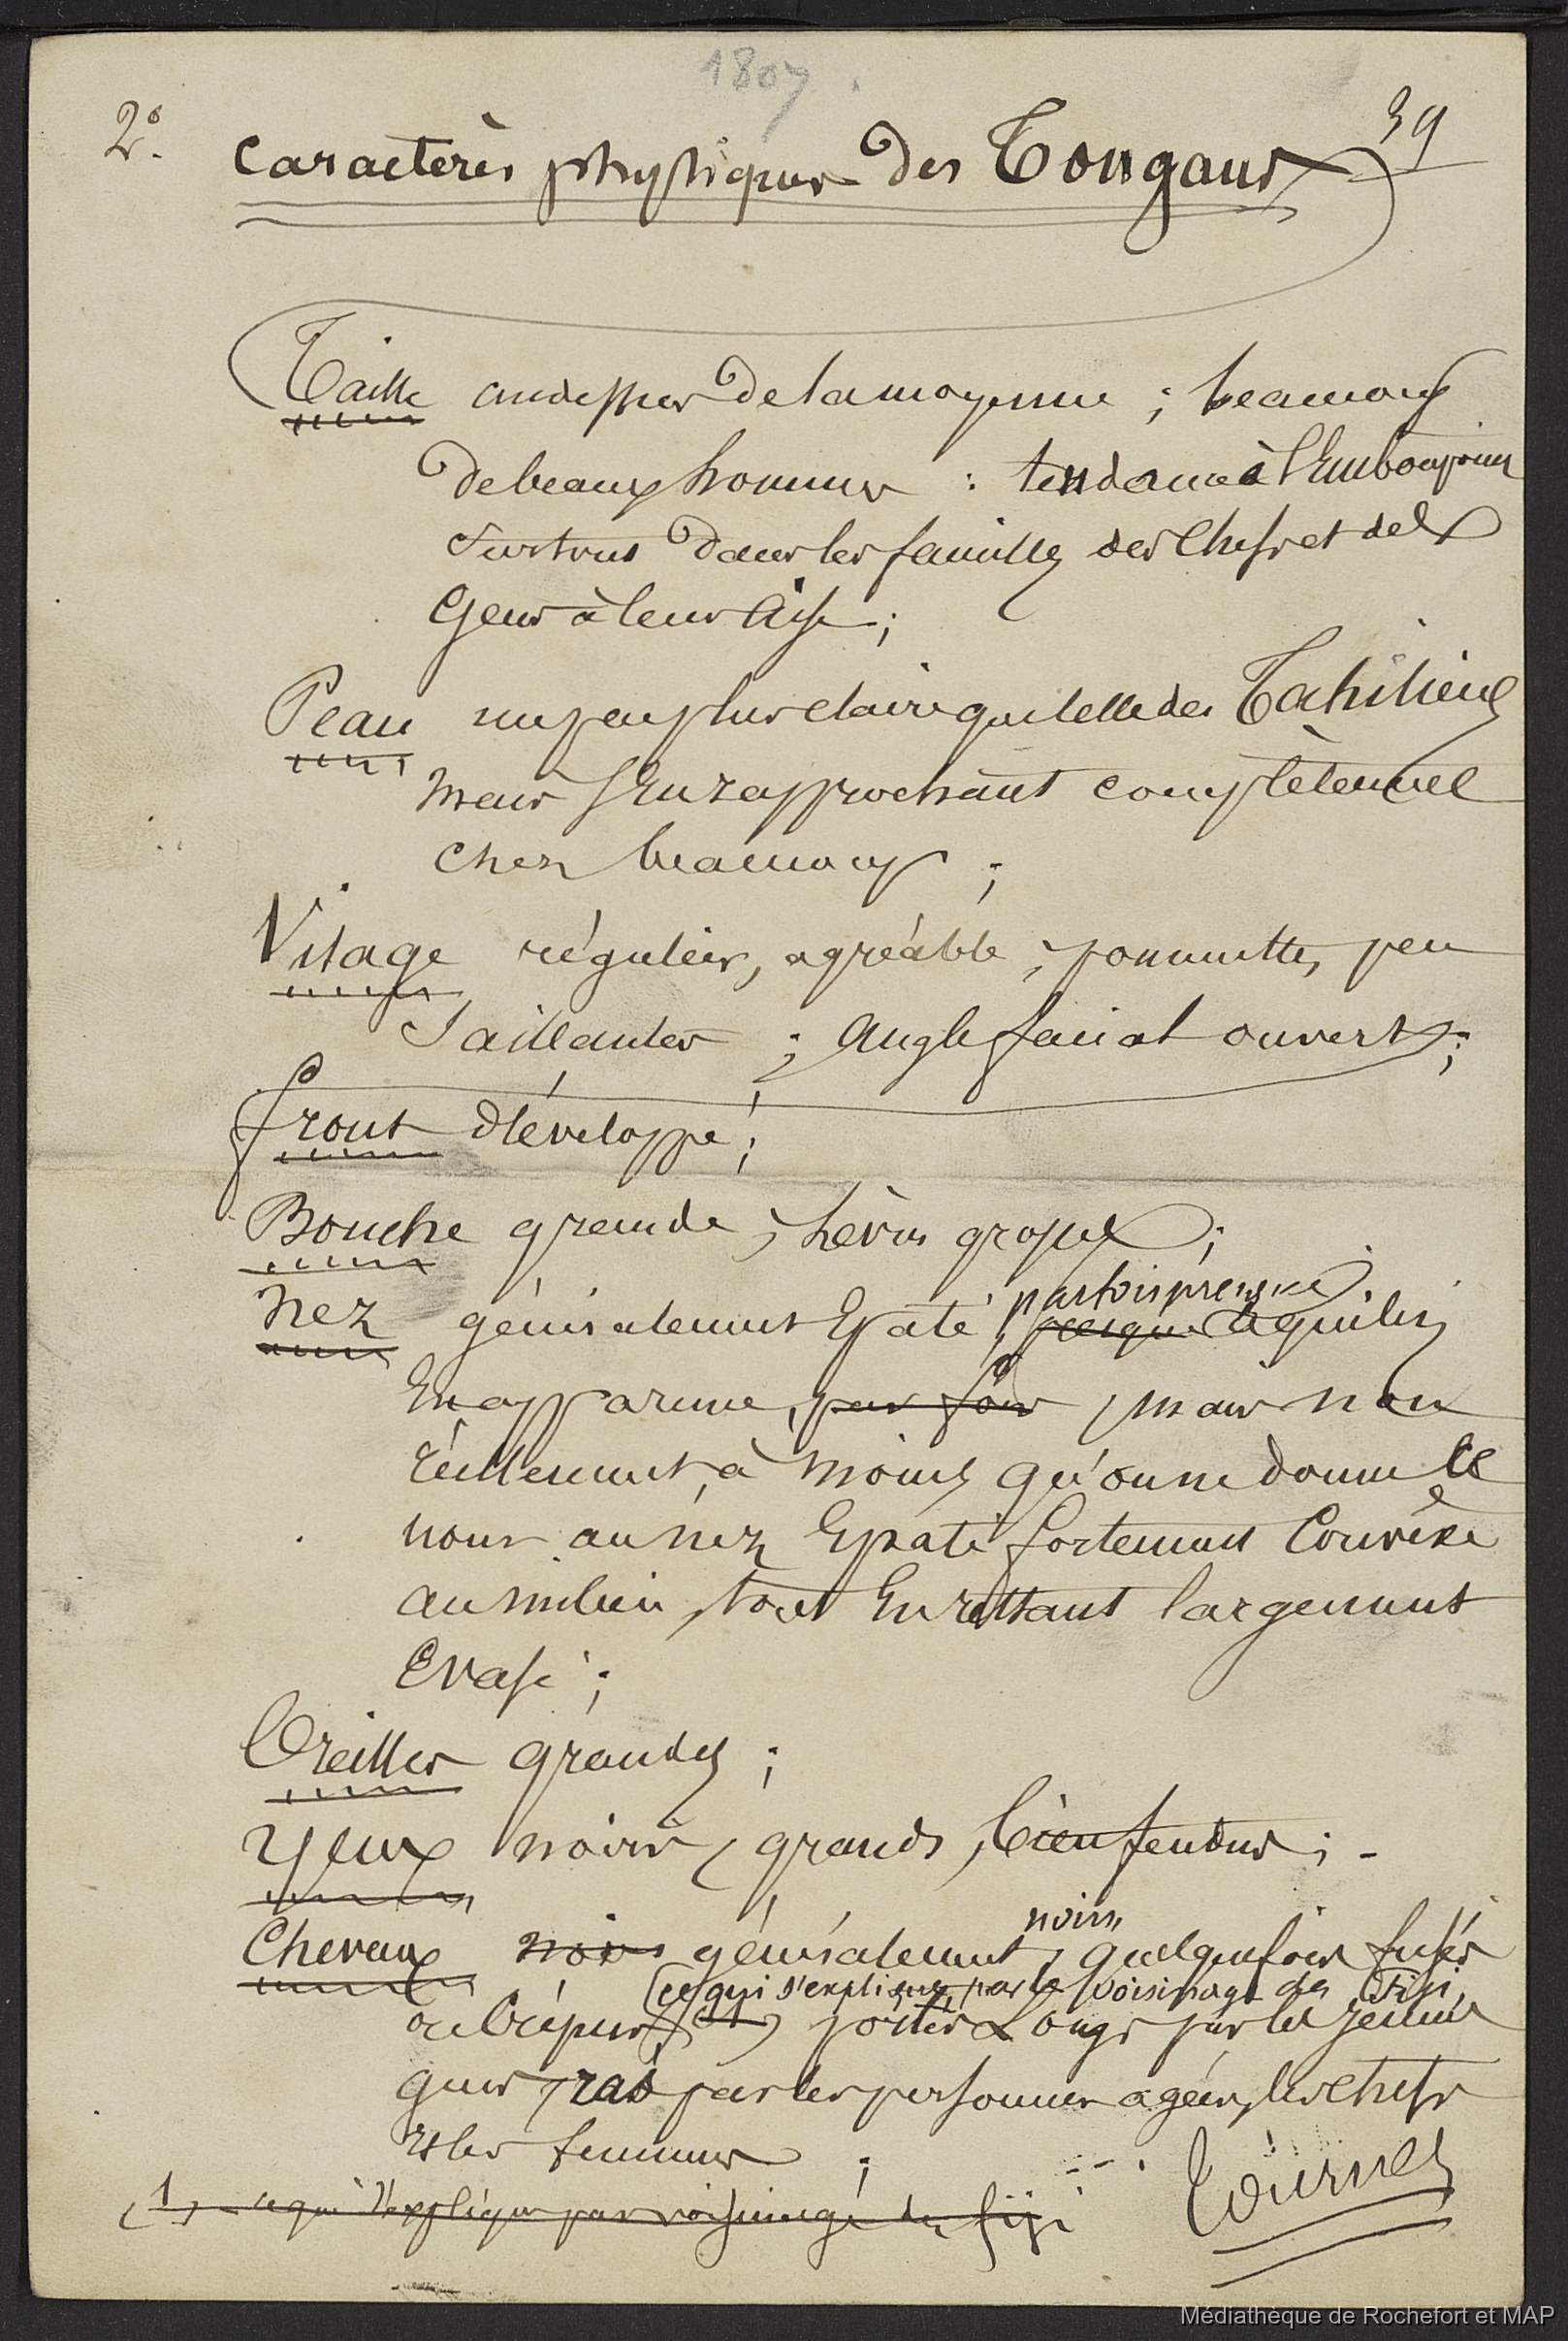 1807
2° 39
Caractères physiques des Tongans
Taille audessus de la moyenne ; beaucoup
de beaux hommes : tendance à l'Embonpoint
surtout dans les familles des Chefs et des
Gens à leur Aise ;
Peau un peu plus claire que celle des Tahitiens
mais s'En rapprochant complètement
chez beaucoup ;
Visage régulier, agréable ; pommettes peu
Saillantes ; Angle facial ouvert ;
front développé ;
Bouche grande ; lèvres grosses ;
parfois presque
Nez généralement Epaté ; presque Aquilin
En apparence, par fois, mais non
réellement, à moins qu'on ne donne ce
nom au nez Epaté fortement Convèxe
au milieu, tout En restant largement
Evasé ;
Oreilles grandes ;
Yeux noirs, grands, bien fendus ; -
noirs,
Cheveux noirs généralement, quelquefois frisés
(ce qui s'explique par le voisinage des Fiji,
ou Crépus (1) portés Longs par les jeunes
gens, ras par les personnes agées, les chefs
et les femmes ; ---.
(1) - ce qui s'explique par voisinage des fiji
Tournes
Médiathèque de Rochefort et MAP